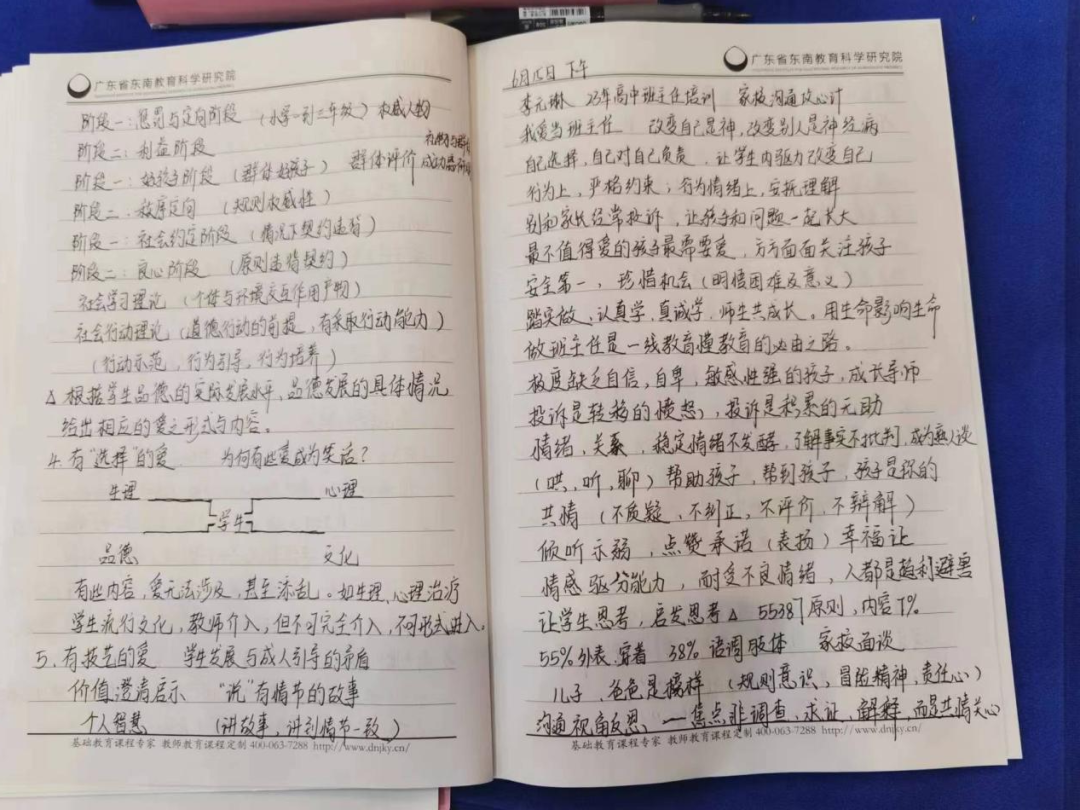 广东省东南教育科学研究院
阶段一：惩罚与定向阶段 （小学一到三年级）权威人物
阶段二：利益阶段
阶段一：好孩子阶段（群体好孩子） 群体评价
阶段二：秩序定向 （规则权威性）
阶段一：社会约定阶段（情况下契约违背）
阶段二：良心阶段 （原则违背契约）
社会学习理论 （个体与环境交互作用产物）
社会行动理论（道德行动的前提，有采取行动能力）
（行动示范，行为引导，行为培养）
△ 根据学生品德的实际发展水平，品德发展的具体情况，
给出相应的爱之形式与内容。
4. 有“选择”的爱 为何有些爱成为笑话？
生理 心理
学生
品德 文化
有些内容，爱无法涉及，甚至添乱。如生理、心理治疗
学生流行文化，教师介入，但不可完全介入，不可形式进入。
5. 有技艺的爱 学生发展与成人引导的矛盾
价值澄清启示 “说”有情节的故事
个人智慧 （讲故事，讲到情节一致）
基础教育课程专家 教师教育课程定制 400-063-7288 http://www.dnjky.cn/
广东省东南教育科学研究院
下午
李元琳 23年高中班主任培训 家校沟通攻心计
我爱当班主任 改变自己是神，改变别人是神经病
自己选择，自己对自己负责，让学生内驱力改变自己
行为上，严格约束；行为情绪上，安抚理解
别和家长经常投诉，让孩子和问题一起长大
最不值得爱的孩子最需要爱，方方面面关注孩子
安全第一，珍惜机会（明借困难及意义）
踏实做，认真学，真诚学，师生共成长。用生命影响生命
做班主任是一线教育懂教育的必由之路。
极度缺乏自信，自卑，敏感性强的孩子，成长导师
投诉是转移的愤怒，投诉是积累的无助
情绪，关系，稳定情绪不发酵，了解事实不批判，成为
（哄，听，聊）帮助孩子，帮到孩子，孩子是你的
共情 （不质疑，不纠正，不评价，不辩解）
倾听示弱，点赞承诺（表扬）幸福让
情感 区分能力，耐受不良情绪，人都是趋利避害
让学生思考，启发思考△ 55387原则，内容7%
55%外表、穿着 38% 语调肢体 家校面谈
儿子，爸爸是榜样 （规则意识，冒险精神，责任心）
沟通视角反思，——焦点非调查，求证，解释，而是共情关心
基础教育课程专家 教师教育课程定制 400-063-7288 http://www.dnjky.cn/